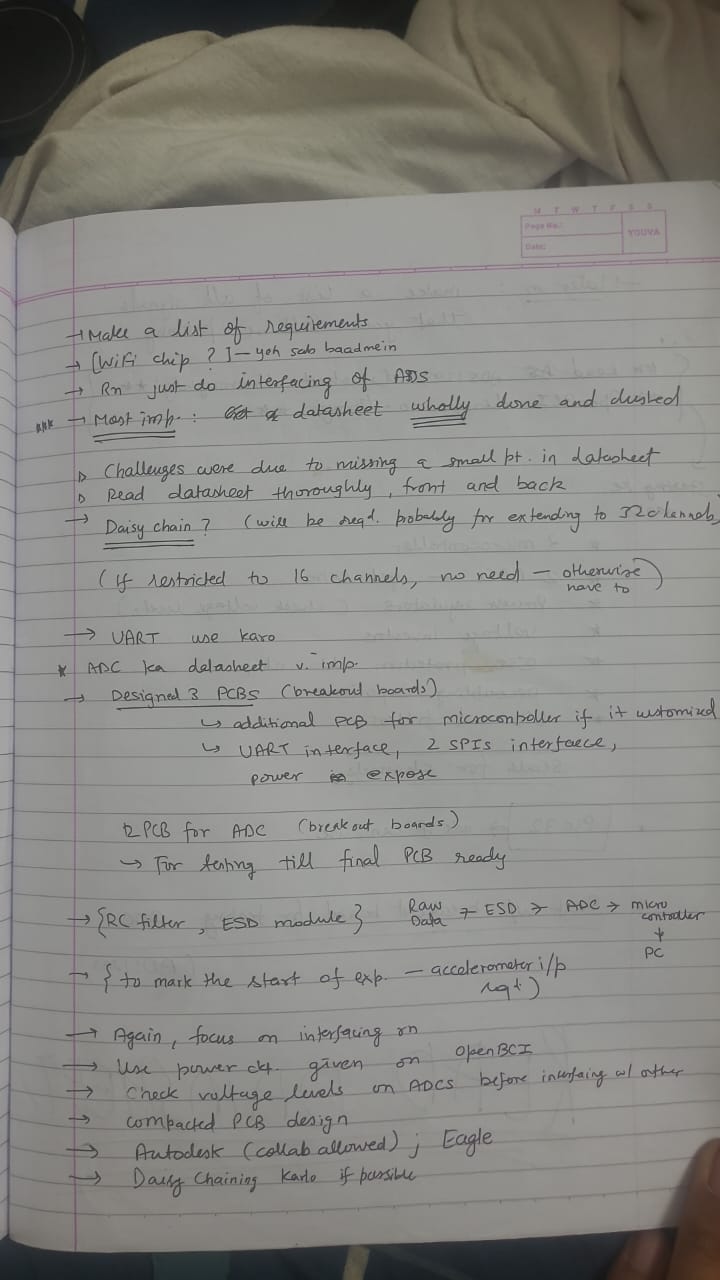 M T W T F S S
Page No.:
Date:
YOUVA
→ Make a list of requirements
→ [WiFi chip ?] — yeh sab baadmein
→ Rn just do interfacing of ADS
*** → Most imp. : datasheet wholly done and dusted
▷ Challenges were due to missing a small pt. in datasheet
▷ Read datasheet thoroughly, front and back
→ Daisy chain? (will be reqd. probably for extending to 32 channels)
(If restricted to 16 channels, no need — otherwise have to)
→ UART use karo
* ADC ka datasheet v. imp.
→ Designed 3 PCBs (breakout boards)
↳ additional PCB for microcontroller if it customized
↳ UART interface, 2 SPIs interfaece,
power expose
2 PCB for ADC (breakout boards)
↳ For testing till final PCB ready
→ {RC filter, ESD module} Raw Data → ESD → ADC → micro controller
↓
PC
→ { to mark the start of exp. — accelerometer i/p
rqt)
→ Again, focus on interfacing rn
→ Use power ckt. given on OpenBCI
→ Check voltage levels on ADCS before interfacing w/ other
→ compacted PCB design
→ Autodesk (collab allowed) ; Eagle
→ Daisy Chaining Karlo if possible